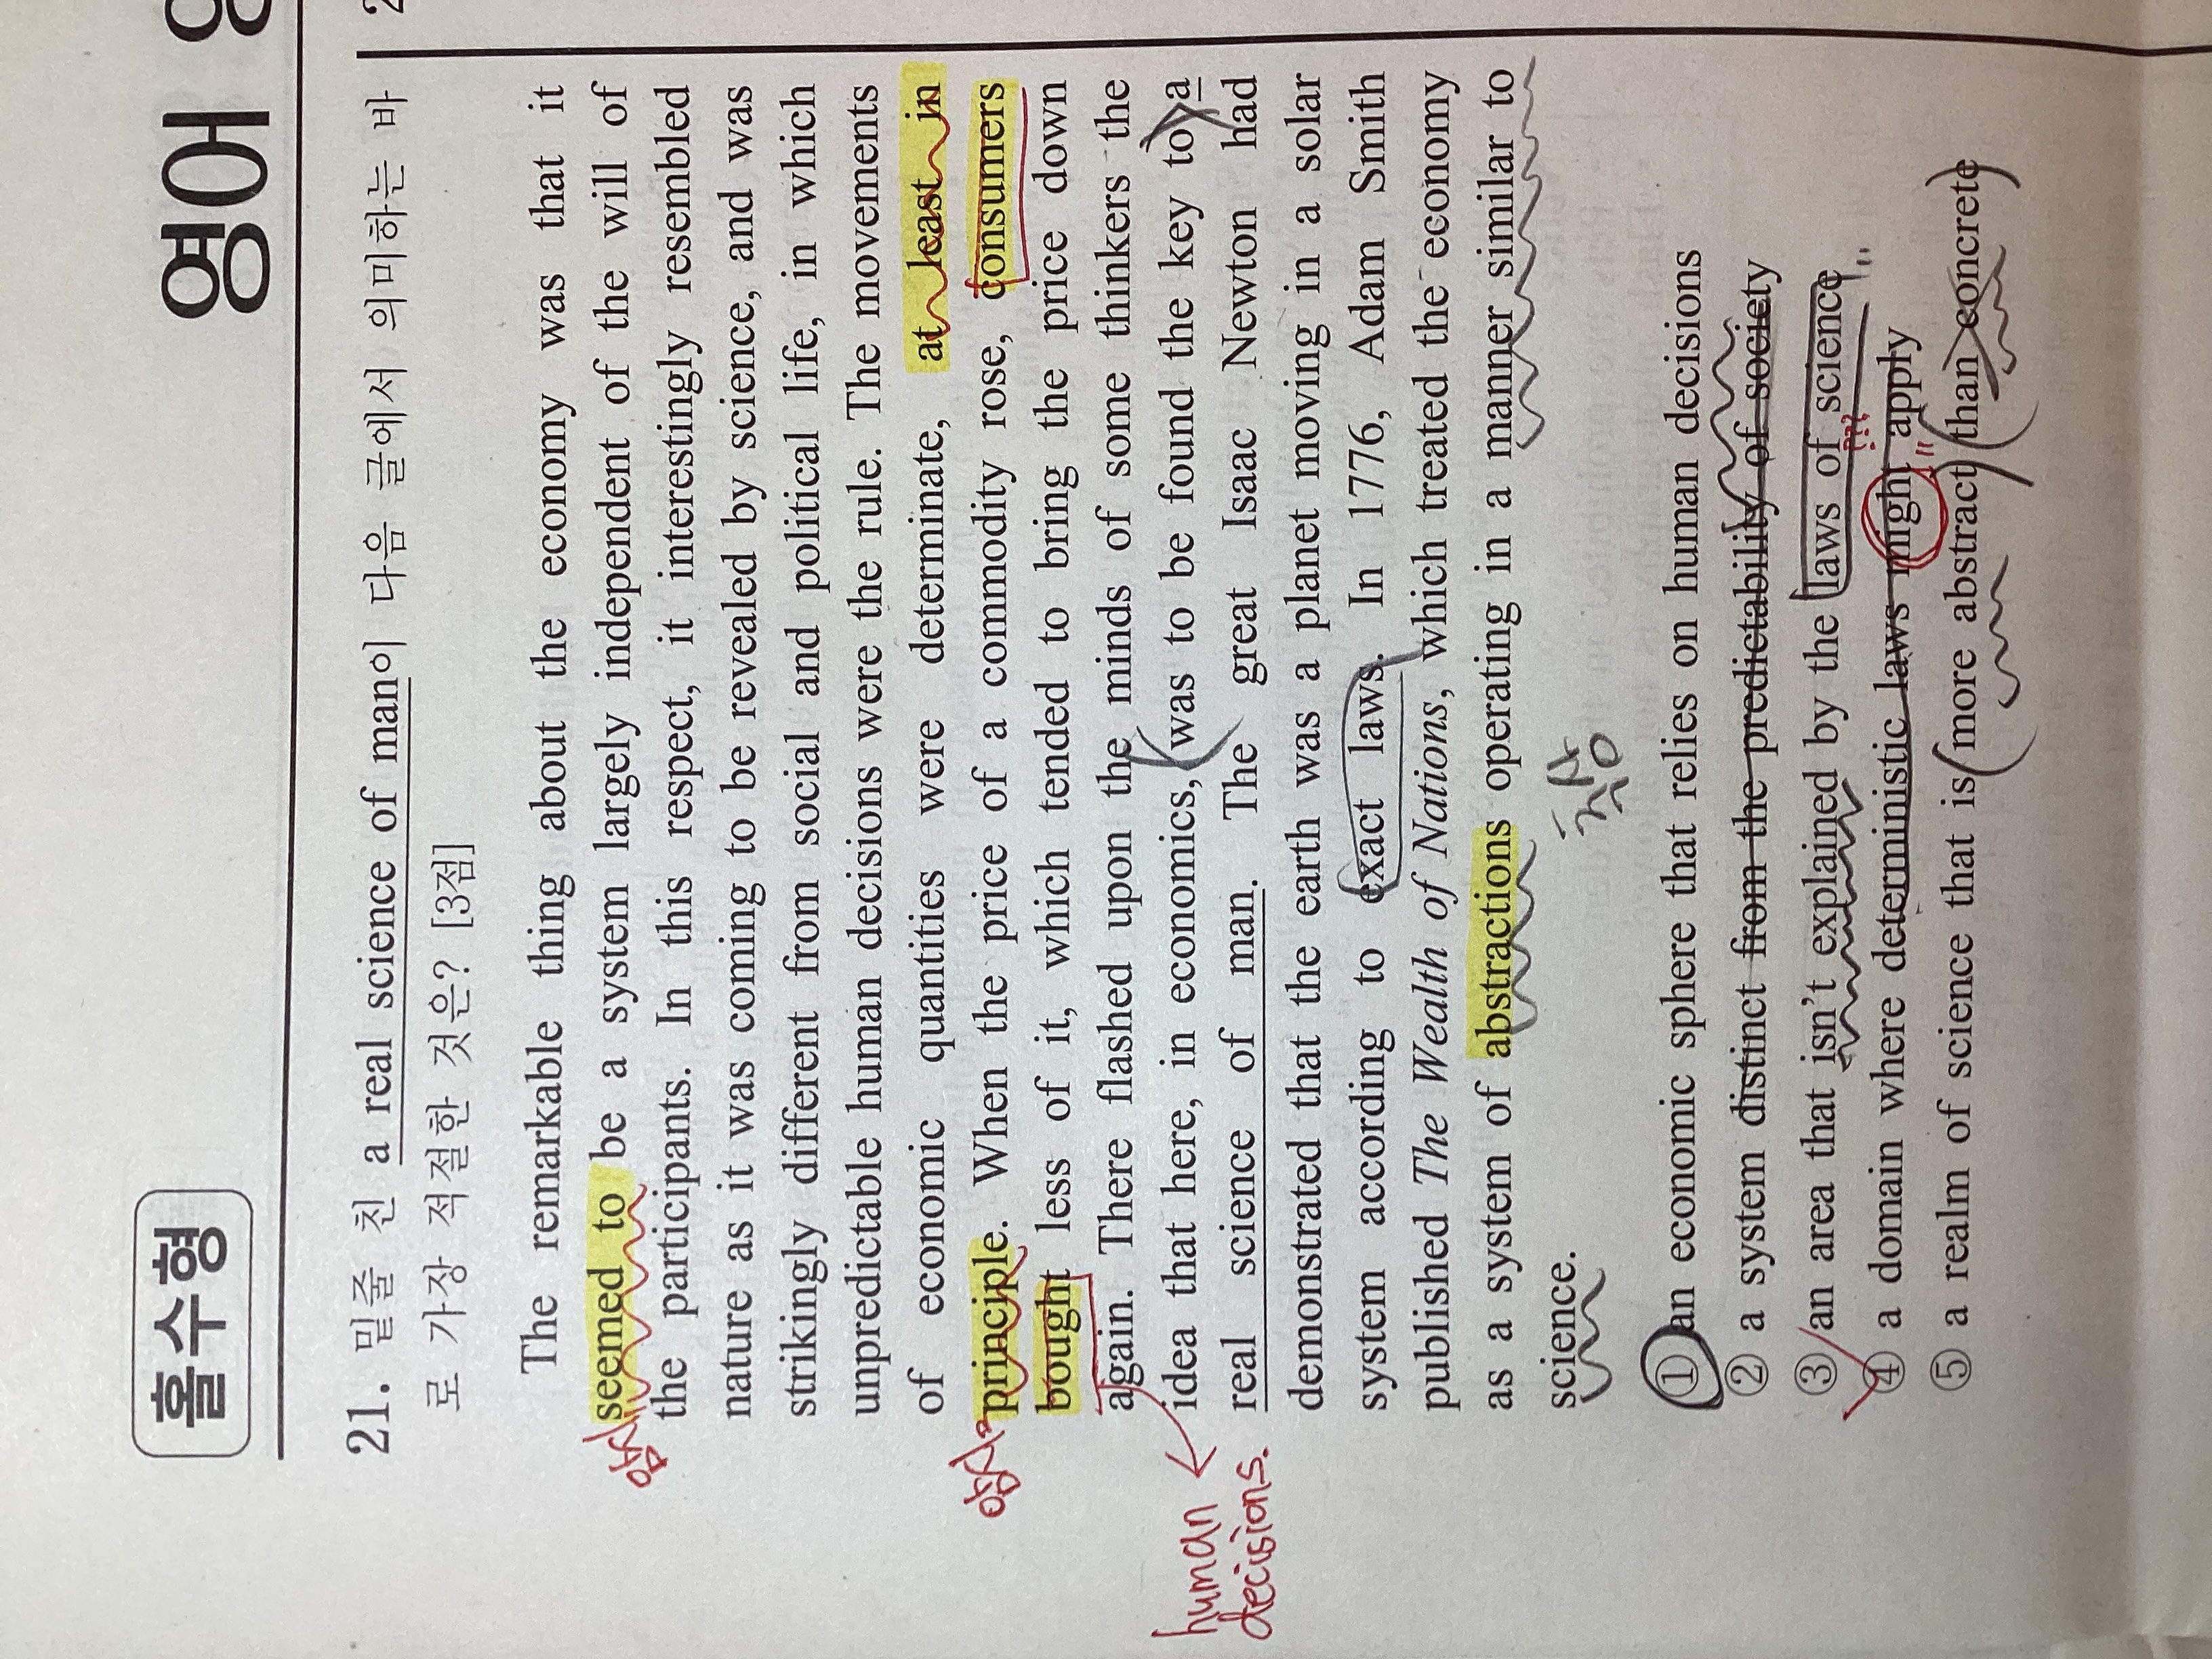 홀수형
영어
21. 밑줄 친 a real science of man이 다음 글에서 의미하는 바
로 가장 적절한 것은? [3점]
The remarkable thing about the economy was that it
seemed to be a system largely independent of the will of
the participants. In this respect, it interestingly resembled
nature as it was coming to be revealed by science, and was
strikingly different from social and political life, in which
unpredictable human decisions were the rule. The movements
of economic quantities were determinate, at least in
principle. When the price of a commodity rose, consumers
bought less of it, which tended to bring the price down
again. There flashed upon the minds of some thinkers the
idea that here, in economics, was to be found the key to a
real science of man. The great Isaac Newton had
demonstrated that the earth was a planet moving in a solar
system according to exact laws. In 1776, Adam Smith
published The Wealth of Nations, which treated the economy
as a system of abstractions operating in a manner similar to
science.
추상
human
decisions.
① an economic sphere that relies on human decisions
② a system distinct from the predictability of society
③ an area that isn't explained by the laws of science
④ a domain where deterministic laws might apply
⑤ a realm of science that is more abstract than concrete